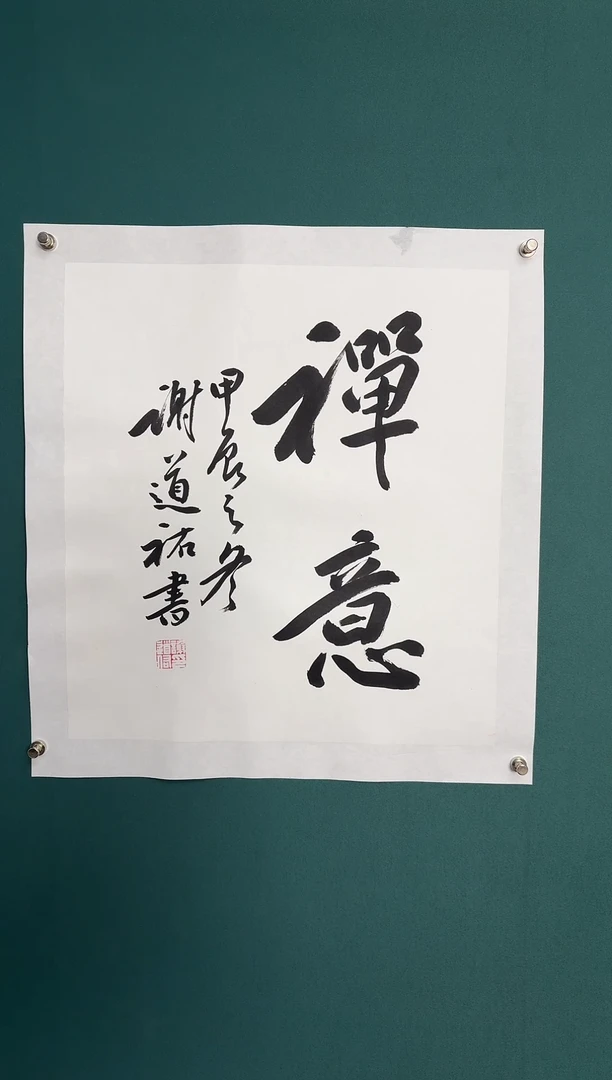 禪意
甲辰之冬
謝道祐書